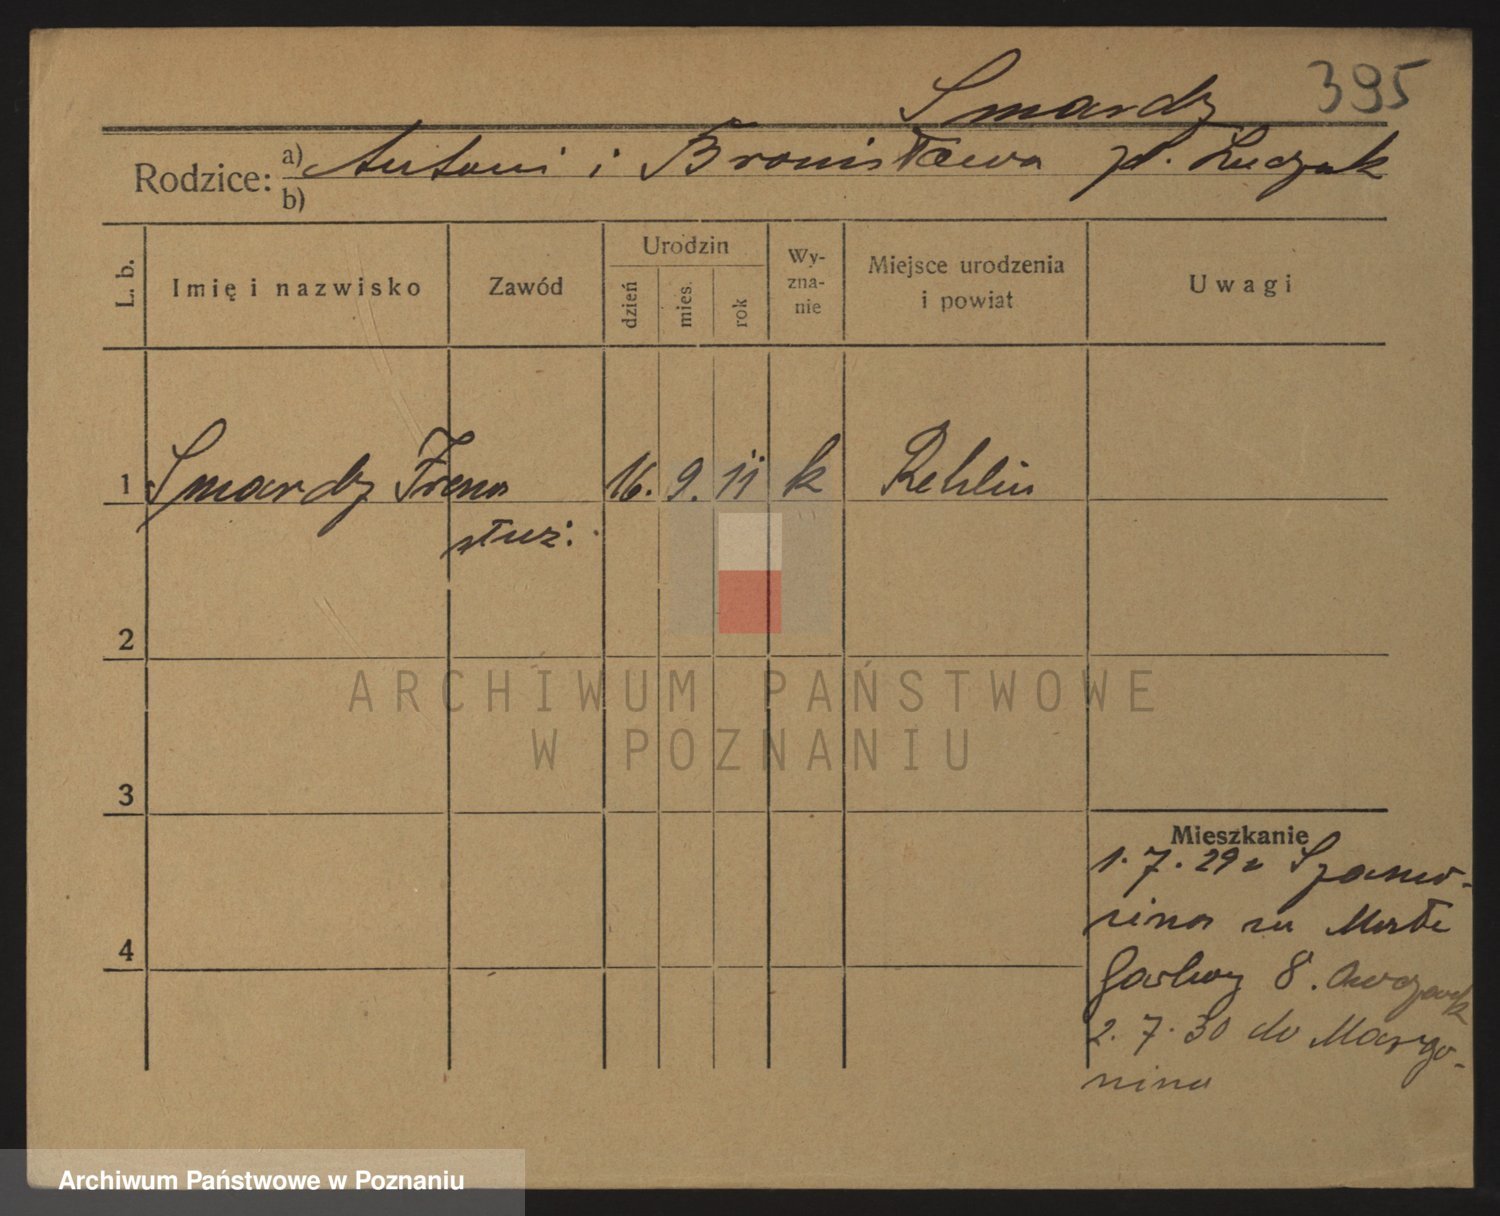 395
Smardz
Rodzice: a) Antoni i Bronisława zd. Łuczak
b)
L. b. Imię i nazwisko Zawód Urodzin dzień mies. rok Wyzna-nie Miejsce urodzenia i powiat Uwagi
1 Smardz Irena 16. 9. 11 k Rehlin
służ:
2
ARCHIWUM PAŃSTWOWE
W POZNANIU
3
Mieszkanie
1. 7. 29 z Szamo-
cina na
4
8.
2. 7. 30 do Margo-
nina
Archiwum Państwowe w Poznaniu